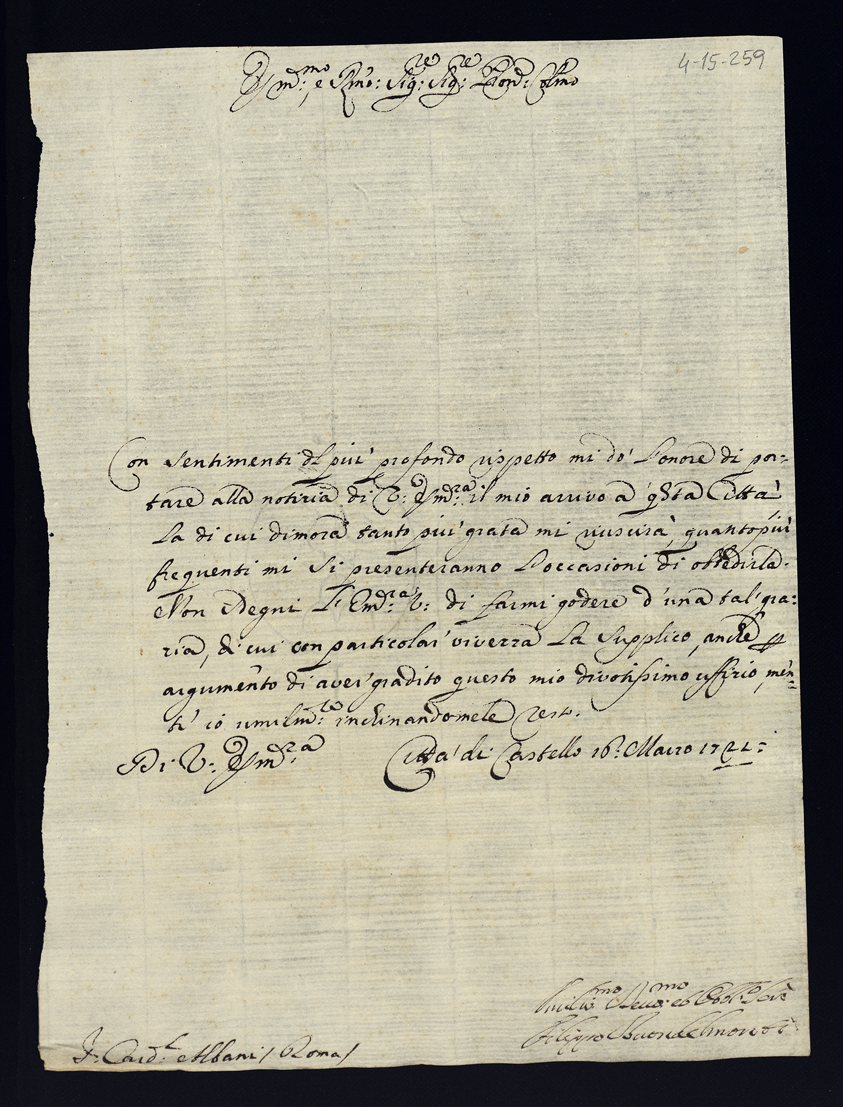 4-15-259
Em̃:mo, e Rmo: Sig:re Sig:re Pron̄: Col̃mo
Con sentimenti dl più profondo rispetto mi dò l'onore di por=
tare alla notizia di V: Em̃:za il mio arrivo a q̃sta Città
La di cui dimora tanto più grata mi riuscirà, quanto più
frequenti mi si presenteranno l'occasioni di obbedirla.
Non Degni L'Em̃:za V: di farmi godere d'una tal gra:
zia, di cui con particolar viverza La supplico, anche p
argumento di aver gradito questo mio divotissimo uffizio, men̄=
t' io umilm̄:te inchinandomele resto.
Di V: Em̃:za
Città di Castello 16: Marzo 1721:
Umilis:mo Devo:mo ed Obbl:o Serv̄
Filippo Buondelmonti
S: Card:l Albani / Roma /